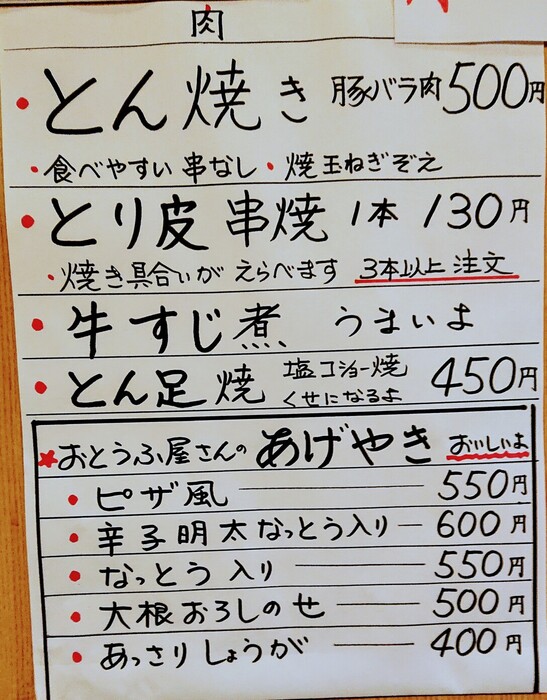 肉
・とん焼き 豚バラ肉 500円
・食べやすい串なし ・焼玉ねぎぞえ
・とり皮串焼 1本 130円
・焼き具合いがえらべます 3本以上注文
・牛すじ煮、うまいよ
・とん足焼 塩コショー焼 450円
くせになるよ
★おとうふ屋さんの あげやき おいしいよ
・ピザ風 550円
・辛子明太なっとう入り 600円
・なっとう入り 550円
・大根おろしのせ 500円
・あっさりしょうが 400円